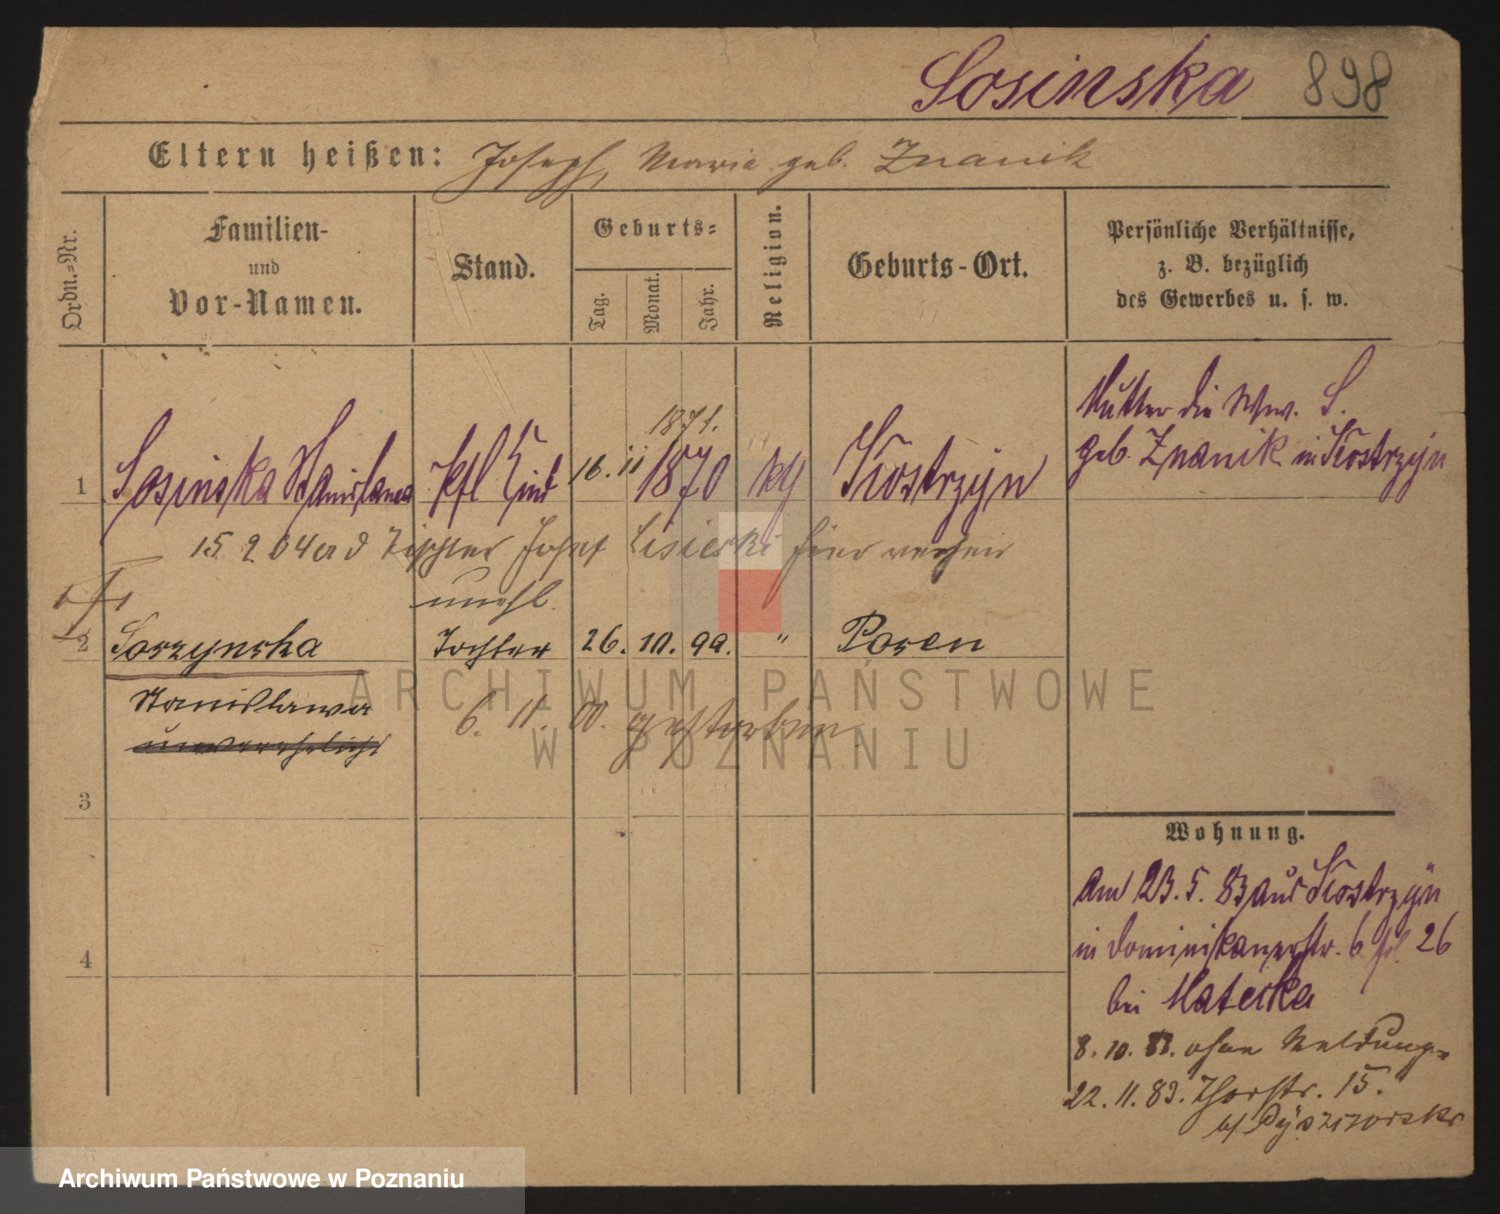 Sosinska 898
Eltern heißen: Joseph, Marie geb. Znanik
Ordn.-Nr.
Familien-
und
Vor-Namen.
Stand.
Geburts-
Tag.
Monat.
Jahr.
Religion.
Geburts-Ort.
Persönliche Verhältnisse,
z. B. bezüglich
des Gewerbes u. s. w.
Mutter die Ww. S.
geb. Znanik in Kostrzyn
1871.
1 Sosinska Stanislawa 16. 11 1870 Kostrzyn
15 2 04 Tischler Josef Lisiecki hier
unehl.
2 Soszynska Tochter 26. 10. 99. " Posen
Stanislawa
unverehelicht
6. 11. 00. gestorben
3
4
Wohnung.
Am 23. 5. 83 aus Kostrzyn
in Dominikanerstr. 6 26
bei Matecka
8. 10. 83. ohne Meldung
22. 11. 83. Thorstr. 15.
ARCHIWUM PAŃSTWOWE
W POZNANIU
Archiwum Państwowe w Poznaniu